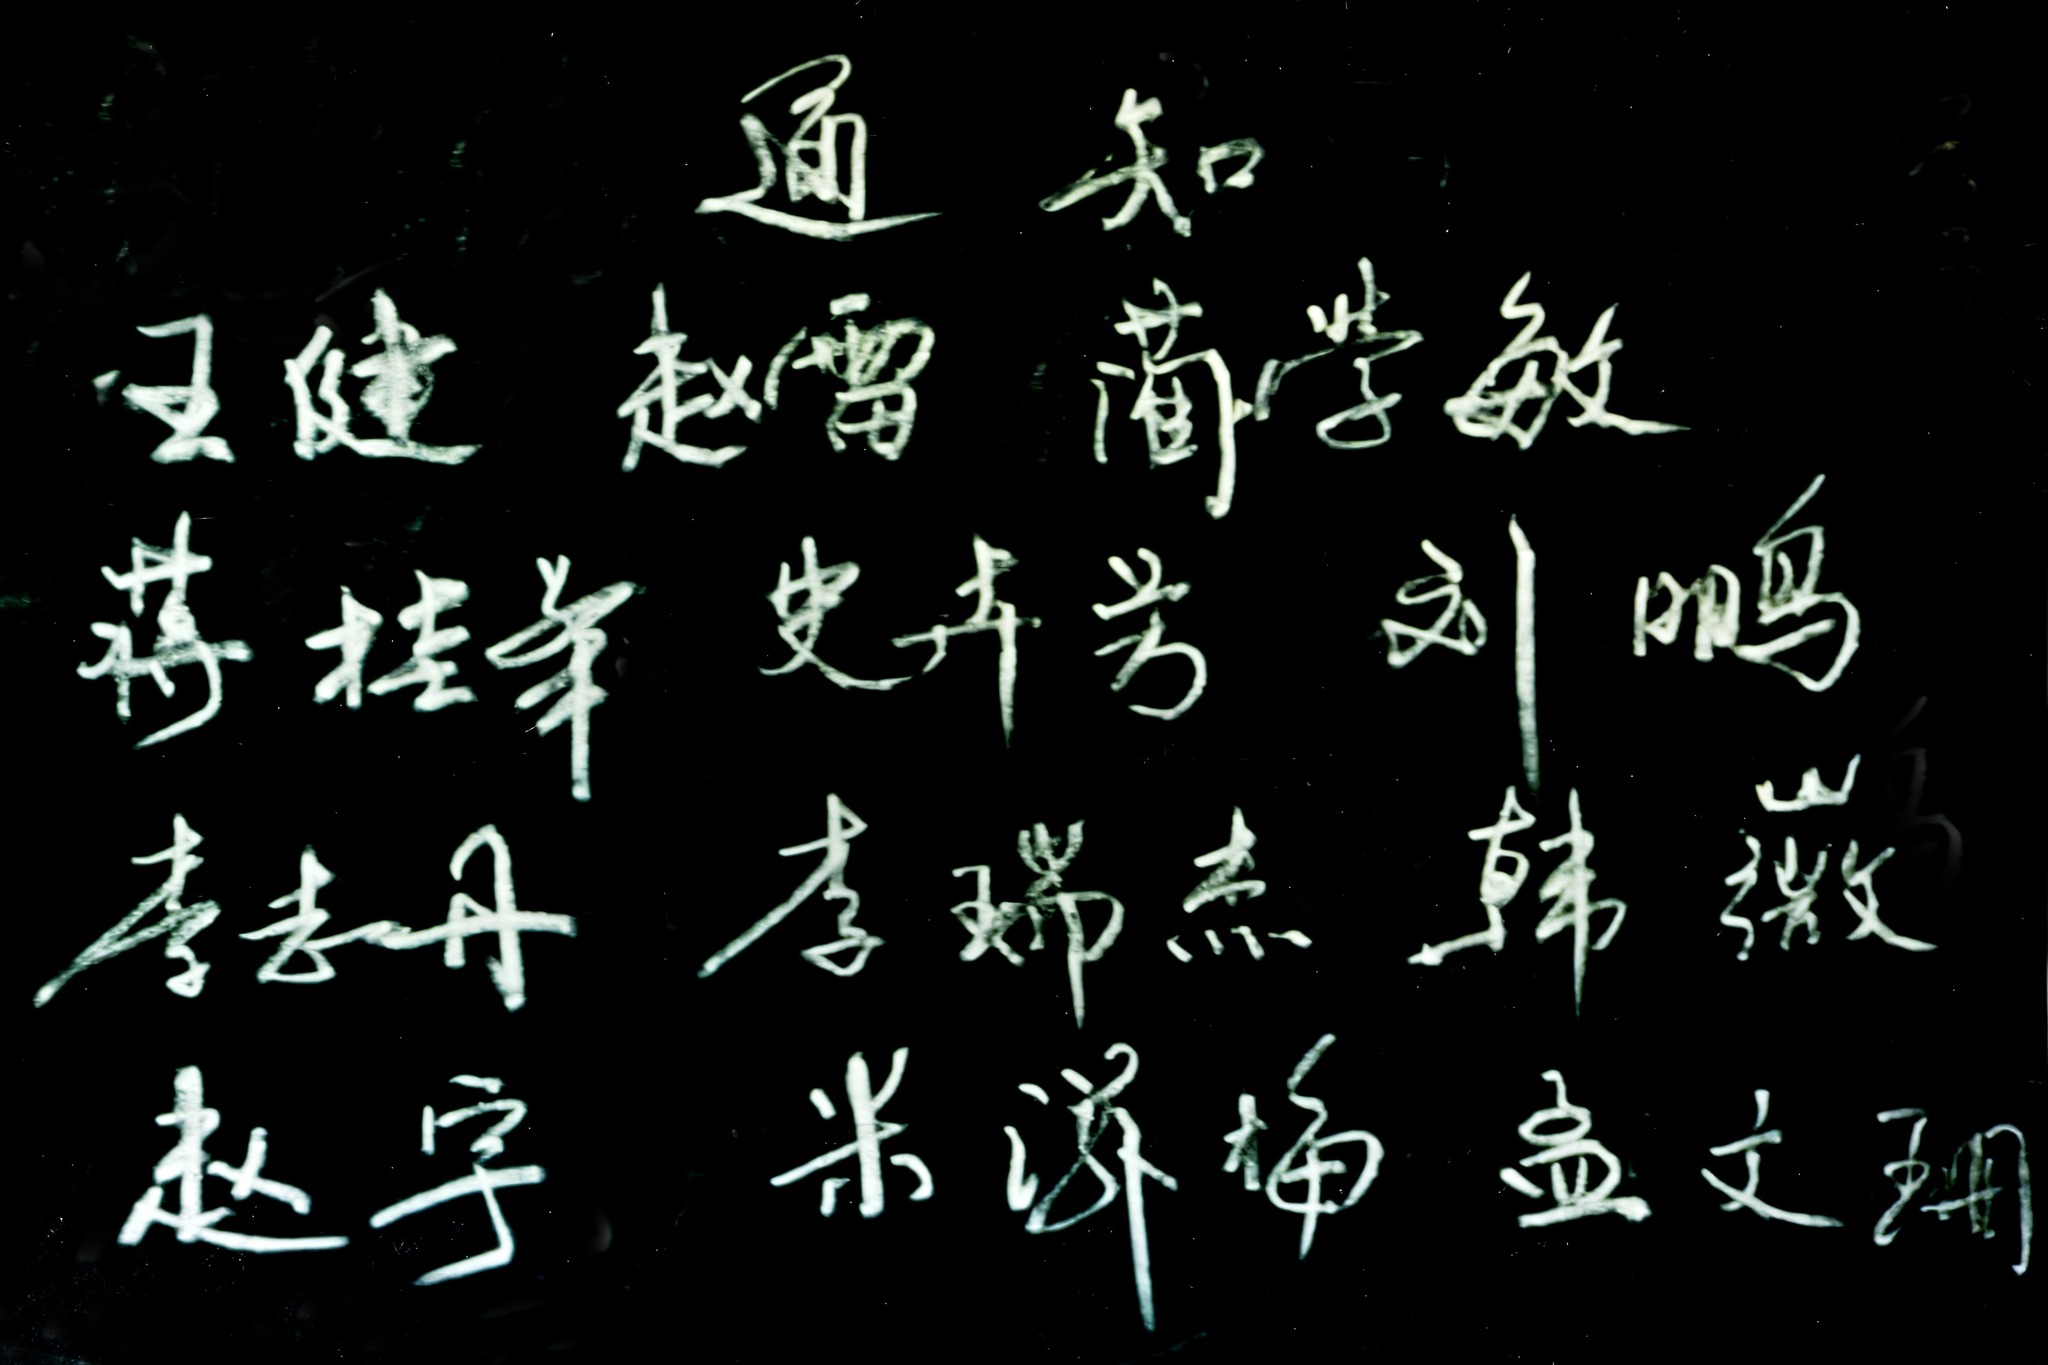 通 知
王健 赵雷 蔺学敏
蒋桂峰 史卉芳 刘鹏
李志丹 李瑞杰 韩薇
赵宇 米 梅 孟文珊